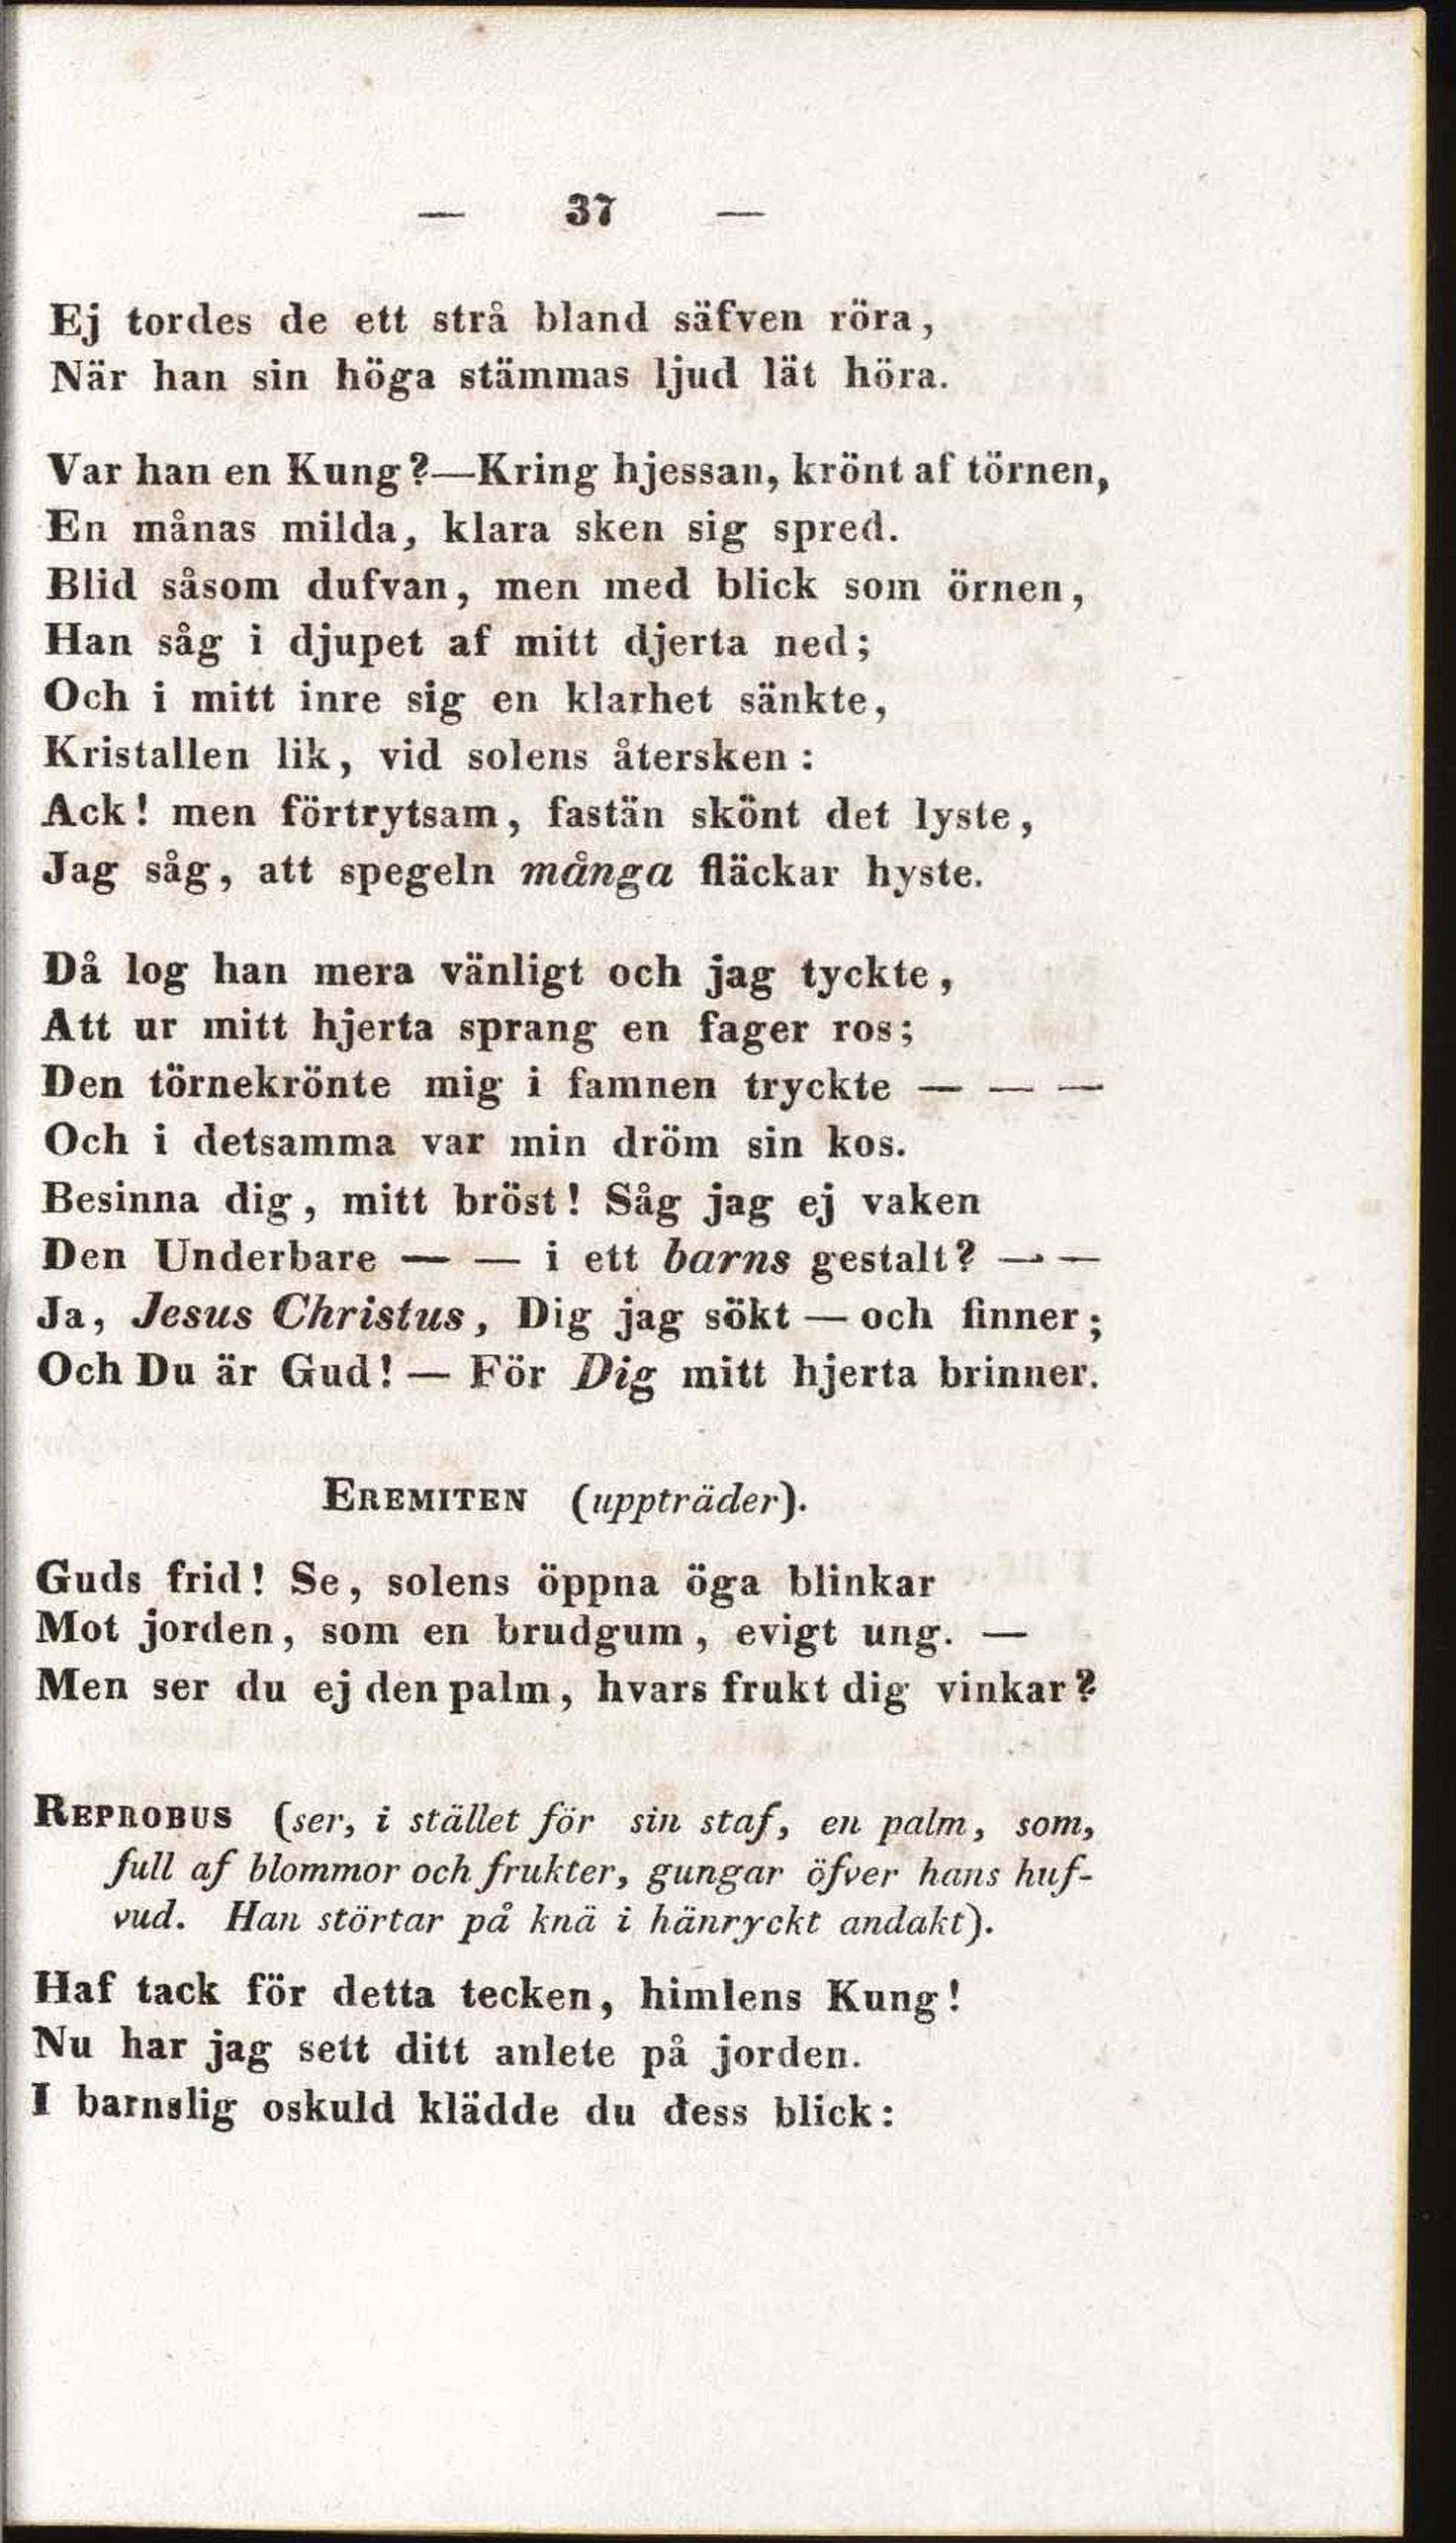 — 37 —
Ej tordes de ett strå bland säfven röra,
När han sin höga stämmas ljud lät höra.
Var han en Kung?—Kring hjessan, krönt af törnen,
En månas milda, klara sken sig spred.
Blid såsom dufvan, men med blick som örnen,
Han såg i djupet af mitt djerta ned;
Och i mitt inre sig en klarhet sänkte,
Kristallen lik, vid solens återsken:
Ack! men förtrytsam, fastän skönt det lyste,
Jag såg, att spegeln många fläckar hyste.
Då log han mera vänligt och jag tyckte,
Att ur mitt hjerta sprang en fager ros;
Den törnekrönte mig i famnen tryckte — — —
Och i detsamma var min dröm sin kos.
Besinna dig, mitt bröst! Såg jag ej vaken
Den Underbare — — i ett barns gestalt? — —
Ja, Jesus Christus, Dig jag sökt — och finner;
Och Du är Gud! — För Dig mitt hjerta brinner.
EREMITEN (uppträder).
Guds frid! Se, solens öppna öga blinkar
Mot jorden, som en brudgum, evigt ung. —
Men ser du ej den palm, hvars frukt dig vinkar?
REPROBUS (ser, i stället för sin staf, en palm, som,
full af blommor och frukter, gungar öfver hans huf-
vud. Han störtar på knä i hänryckt andakt).
Haf tack för detta tecken, himlens Kung!
Nu har jag sett ditt anlete på jorden.
I barnslig oskuld klädde du dess blick: